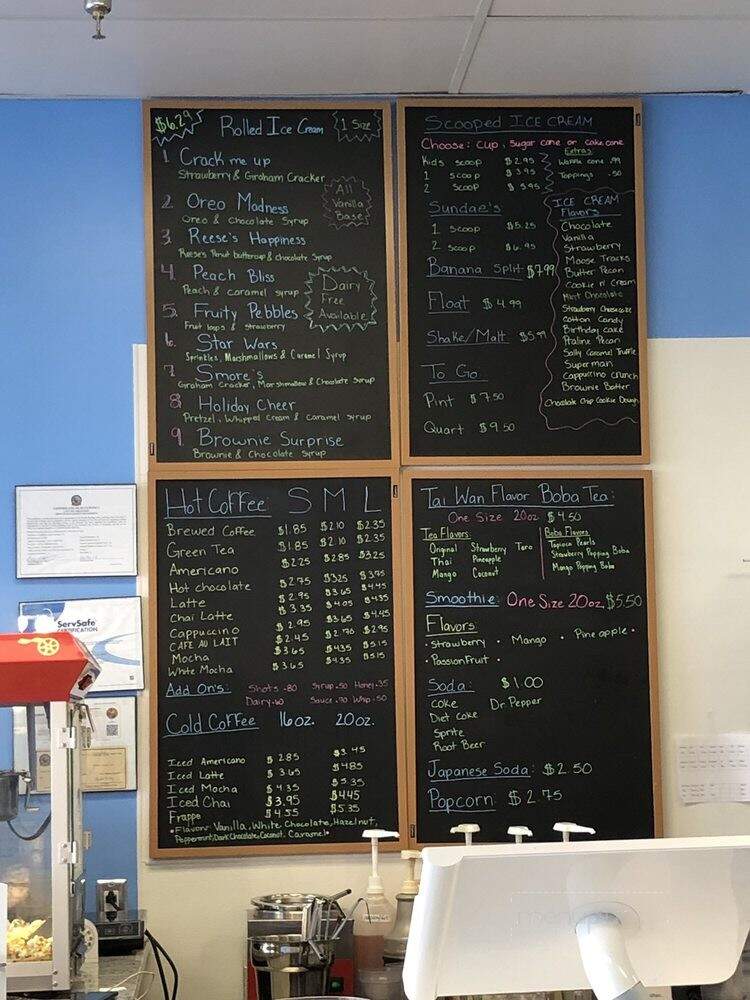 $6.29 Rolled Ice Cream 1 Size
1. Crack me up
Strawberry & Graham Cracker
2. Oreo Madness
Oreo & Chocolate Syrup
3. Reese's Happiness
Reese's Penut buttercup & chocolate Syrup
4. Peach Bliss
Peach & caramel syrup
5. Fruity Pebbles
Fruit loops & Strawberry
6. Star Wars
Sprinkles, Marshmallows & Caramel Syrup
7. Smore's
Graham Cracker, Marshmallow & Chocolate Syrup
8. Holiday Cheer
Pretzel, Whipped Cream & Caramel Syrup
9. Brownie Surprise
Brownie & Chocolate Syrup
All
Vanilla
Base
Dairy
Free
Available
Scooped ICE CREAM
Choose: cup, sugar cone or cake cone
Kids scoop $2.95
1 scoop $3.95
2 scoop $5.95
Extras:
Waffle cone .99
Toppings .50
Sundae's
1 scoop $5.25
2 scoop $6.95
Banana Split $7.99
Float $4.99
Shake/Malt $5.99
To Go
Pint $7.50
Quart $9.50
ICE CREAM
Flavors
Chocolate
Vanilla
Strawberry
Moose Tracks
Butter Pecan
Cookie n' Cream
Mint Chocolate
Strawberry Cheesecake
Cotton Candy
Birthday cake
Praline Pecan
Salty Caramel Truffle
Superman
Cappuccino Crunch
Brownie Batter
Chocolate Chip Cookie Dough
Hot Coffee S M L
Brewed Coffee $1.85 $2.10 $2.35
Green Tea $1.85 $2.10 $2.35
Americano $2.25 $2.85 $3.25
Hot chocolate $2.75 $3.25 $3.75
Latte $2.95 $3.65 $4.45
Chai Latte $3.35 $4.05 $4.35
Cappuccino $2.95 $3.65 $4.45
CAFE AU LAIT $2.45 $2.70 $2.95
Mocha $3.65 $4.35 $5.15
White Mocha $3.65 $4.35 $5.15
Add On's: Shots .80 Syrup .50 Honey .35
Dairy .60 Sauce .70 Whip .50
Cold Coffee 16oz. 20oz.
Iced Americano $2.85 $3.45
Iced Latte $3.65 $4.85
Iced Mocha $4.35 $5.35
Iced Chai $3.95 $4.45
Frappe $4.55 $5.35
*Flavors: Vanilla, White Chocolate, Hazelnut,
Peppermint, Dark Chocolate, Coconut, Caramel*
Tai Wan Flavor Boba Tea:
One Size 20oz $4.50
Tea Flavors:
Original Strawberry Taro
Thai Pineapple
Mango Coconut
Boba Flavors:
Tapioca Pearls
Strawberry Popping Boba
Mango Popping Boba
Smoothie: One Size 20oz. $5.50
Flavors:
• Strawberry • Mango • Pineapple •
• PassionFruit •
Soda: $1.00
Coke Dr. Pepper
Diet Coke
Sprite
Root Beer
Japanese Soda: $2.50
Popcorn: $2.75
ServSafe
CERTIFICATION